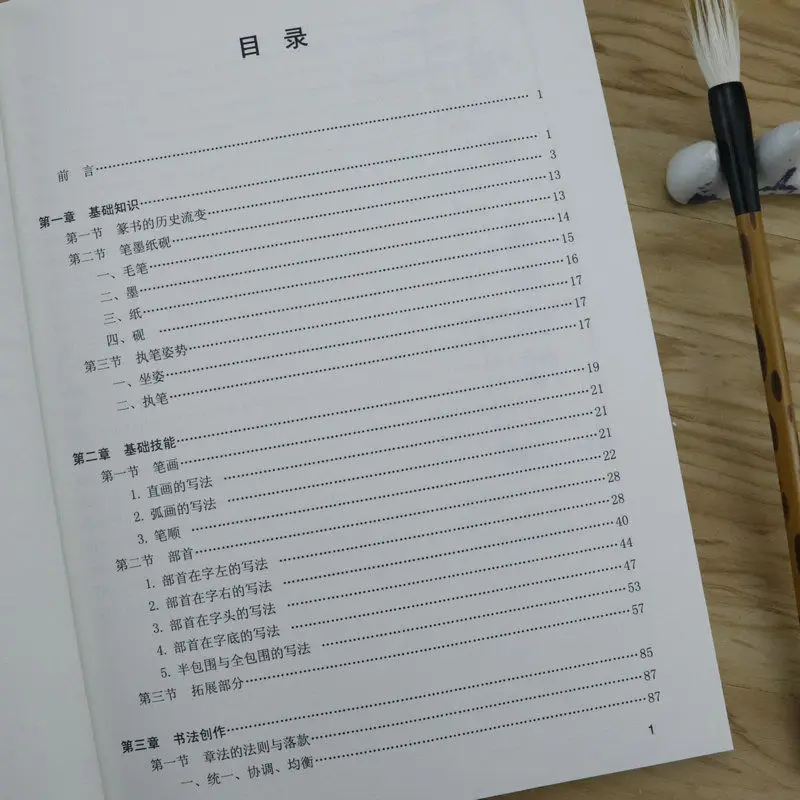 目 录
前 言……………………1
第一章 基础知识……………………1
第一节 篆书的历史流变……………………3
第二节 笔墨纸砚……………………13
一、毛笔……………………13
二、墨……………………14
三、纸……………………15
四、砚……………………16
第三节 执笔姿势……………………17
一、坐姿……………………17
二、执笔……………………17
第二章 基础技能……………………19
第一节 笔画……………………21
1. 直画的写法……………………21
2. 弧画的写法……………………21
3. 笔顺……………………22
第二节 部首……………………28
1. 部首在字左的写法……………………28
2. 部首在字右的写法……………………40
3. 部首在字头的写法……………………44
4. 部首在字底的写法……………………47
5. 半包围与全包围的写法……………………53
第三节 拓展部分……………………57
第三章 书法创作……………………85
第一节 章法的法则与落款……………………87
一、统一、协调、均衡……………………87
1